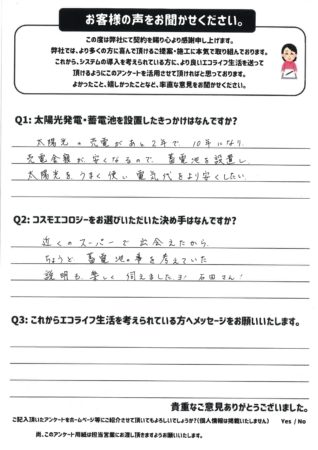 お客様の声をお聞かせください。
この度は弊社にて契約を賜り心より感謝申し上げます。
弊社では、より多くの方に喜んで頂けるご提案・施工に本気で取り組んでおります。
これから、システムの導入を考えられている方に、より良いエコライフ生活を送って
頂けるようにこのアンケートを活用させて頂ければと思っております。
よかったこと、嬉しかったことなど、率直な意見をお聞かせください。
Q1: 太陽光発電・蓄電池を設置したきっかけはなんですか?
太陽光の売電があと2年で、10年になり
売電金額が安くなるので、蓄電池を設置し、
太陽光をうまく使い電気代をより安くしたい
Q2: コスモエコロジーをお選びいただいた決め手はなんですか?
近くのスーパーで出会えたから
ちょうど蓄電池の事を考えていた
説明も楽しく伺えました 石田さん!
Q3: これからエコライフ生活を考えられている方へメッセージをお願いいたします。
貴重なご意見ありがとうございました。
ご記入頂いたアンケートをホームページ等にご紹介させて頂いてもよろしいでしょうか?(個人情報は掲載いたしません) Yes / No
尚、このアンケート用紙は担当営業にお渡し頂きますようお願いいたします。